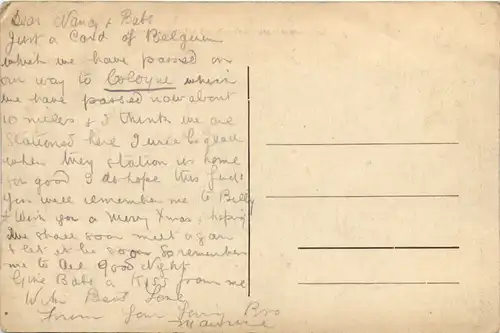 Dear Nancy & Babs
Just a Card of Belguim
which we have passed on
our way to Cologne which
we have passed now about
10 miles & I think we are
stationed here I will be glad
when they station us home
for good I do hope this finds
you well remember me to Billy
& Wish you a Merry Xmas & hoping
we shall soon meet again
& let it be soon So remember
me to all Good Night
Give Babs a Kiss from me
With Best Love
From Your Loving Bro
Maurice